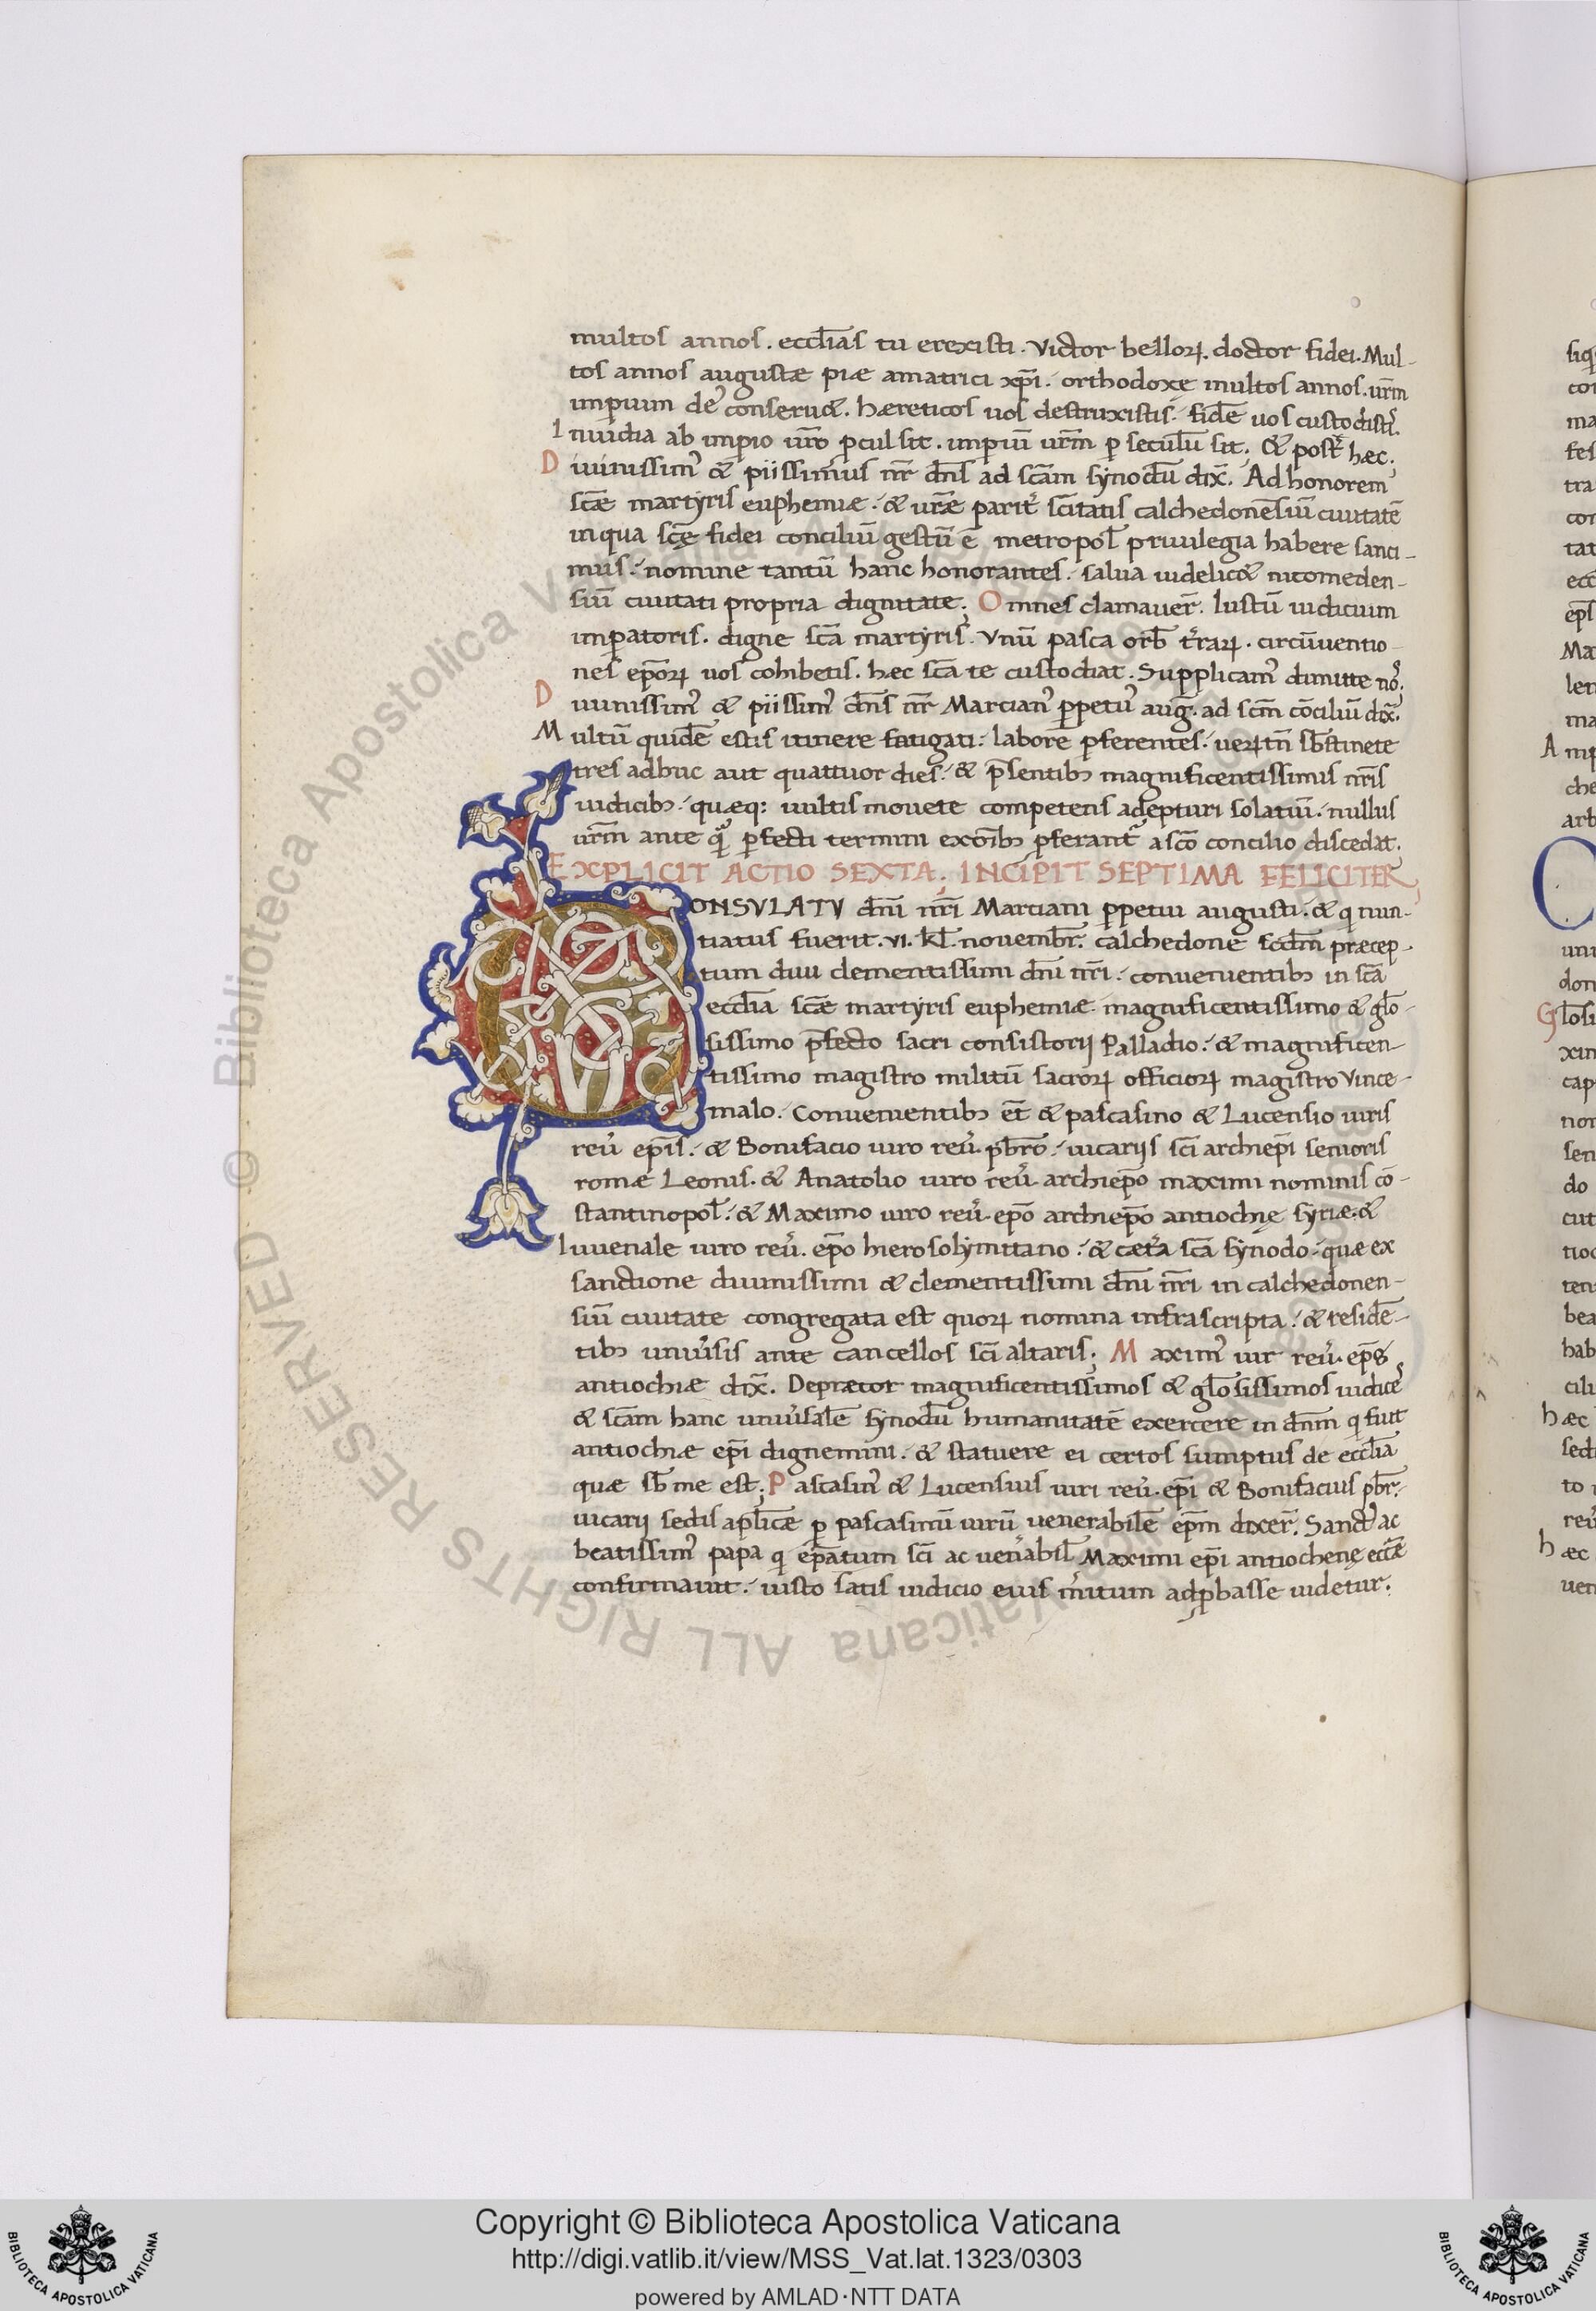 multos annos. eccl̄ias tu erexisti. Victor belloꝝ. doctor fidei. Mul-
tos annos augustæ piæ amatrici xp̄i. orthodoxę multos annos. ur̄m
imp̱ium de᷒ conseru&. hæreticos uos destruxistis. fidē uos custodisti᷒.
Inuidia ab imp̱io ur̄o ꝓcul sit. imp̱iū ur̄m ꝑ secul̄u sit; & post᷒ hæc.
Diuinissim᷒ & piissimus nr̄ dn̄s ad sc̄am synodū dix̄. Ad honorem
sc̄æ martyris euphemiæ. & ur̄æ parit᷒ sc̄itatis calchedonēsiū ciuitatē
in qua sc̄ę fidei conciliū gestū ē metropol̄ priuilegia habere sanci-
mus. nomine tantū hanc honorantes. salua uidelic& nicomeden-
siū ciuitati propria dignitate; Omnes clamauer̄. Iustū iudicium
imp̱atoris. digne sc̄a martyris. Vnū pasca orb̄ t᷒raꝝ. circūuentio-
nes ep̄oꝝ uos cohibetis. hæc sc̄a te custodiat. Supplicam᷒ dimitte no᷒;
Diuinissim᷒ & piissim᷒ dn̄s nr̄ Marcian᷒ ꝑpetu᷒ auḡ. ad sc̄m cōciliū dix̄.
Multū quidē estis itinere fatigati. laborē ꝑferentes. ueꝝtn̄ sb̄stinete
tres adhuc aut quattuor dies. & p̄sentibꝫ magnificentissimis nr̄is
iudicibꝫ. quæq: uultis mouete competens adepturi solatiū. nullus
ur̄m ante qͣꝫ ꝑfecti termini ex om̄ibꝫ ꝓferant᷒ a sc̄o concilio discedat.
EXPLICIT ACTIO SEXTA; INCIPIT SEPTIMA FELICITER;
CONSVLATV dn̄i nr̄i Marciani ꝑpetui augusti. & q nun-
tiatus fuerit. VI. kl̄. nouembr̄. calchedone scd̄m præcep-
tum diui clementissimi dn̄i nr̄i. conuenientibꝫ in sc̄a
eccl̄ia sc̄æ martyris euphemiæ magnificentissimo & gl̄o-
sissimo p̄fecto sacri consistorij Palladio. & magnificen-
tissimo magistro militū sacroꝝ officioꝝ magistro Vince-
malo. Conuenientibꝫ et̄ & pascasino & Lucensio uiris
reu᷒ ep̄is. & Bonifacio uiro reu᷒. pb̄ro. uicarijs sc̄i archiep̄i senioris
romæ Leonis. & Anatolio uiro reu᷒. archiep̄o maximi nominis cō-
stantinopol̄. & Maximo uiro reu᷒. ep̄o archiep̄o antiochię syriæ. &
Iuuenale uiro reu᷒. ep̄o hierosolymitano. & cæt᷒a sc̄a synodo. quæ ex
sanctione diuinissimi & clementissimi dn̄i nr̄i in calchedonen-
siū ciuitate congregata est quoꝝ nomina infrascripta. & residē-
tibꝫ uniu᷒sis ante cancellos sc̄i altaris; Maxim᷒ uir reu᷒. ep̄s
antiochiæ dix̄. Deprætor magnificentissimos & gl̄osissimos iudice᷒
& sc̄am hanc uniu᷒salē synodū humanitatē exercere in dn̄m q fuit
antiochiæ ep̄i dignemini. & statuere ei certos sumptus de eccl̄ia
quæ sb̄ me est; Pascasin᷒ & Lucensius uiri reu᷒. ep̄i & Bonifacius pb̄r.
uicarij sedis apl̄icæ ꝑ pascasinū uirū uenerabilē ep̄m dixer̄. Sanct᷒ ac
beatissim᷒ papa q ep̄atum sc̄i ac uen᷒abil̄ Maximi ep̄i antiochenę ecc̄æ
confirmauit. iusto satis iudicio eius m᷒itum adꝓbasse uidetur.
Copyright © Biblioteca Apostolica Vaticana
http://digi.vatlib.it/view/MSS_Vat.lat.1323/0303
powered by AMLAD·NTT DATA
BIBLIOTECA APOSTOLICA VATICANA
BIBLIOTECA APOSTOLICA VATICANA
© Biblioteca Apostolica Vaticana ALL RIGHTS RESERVED